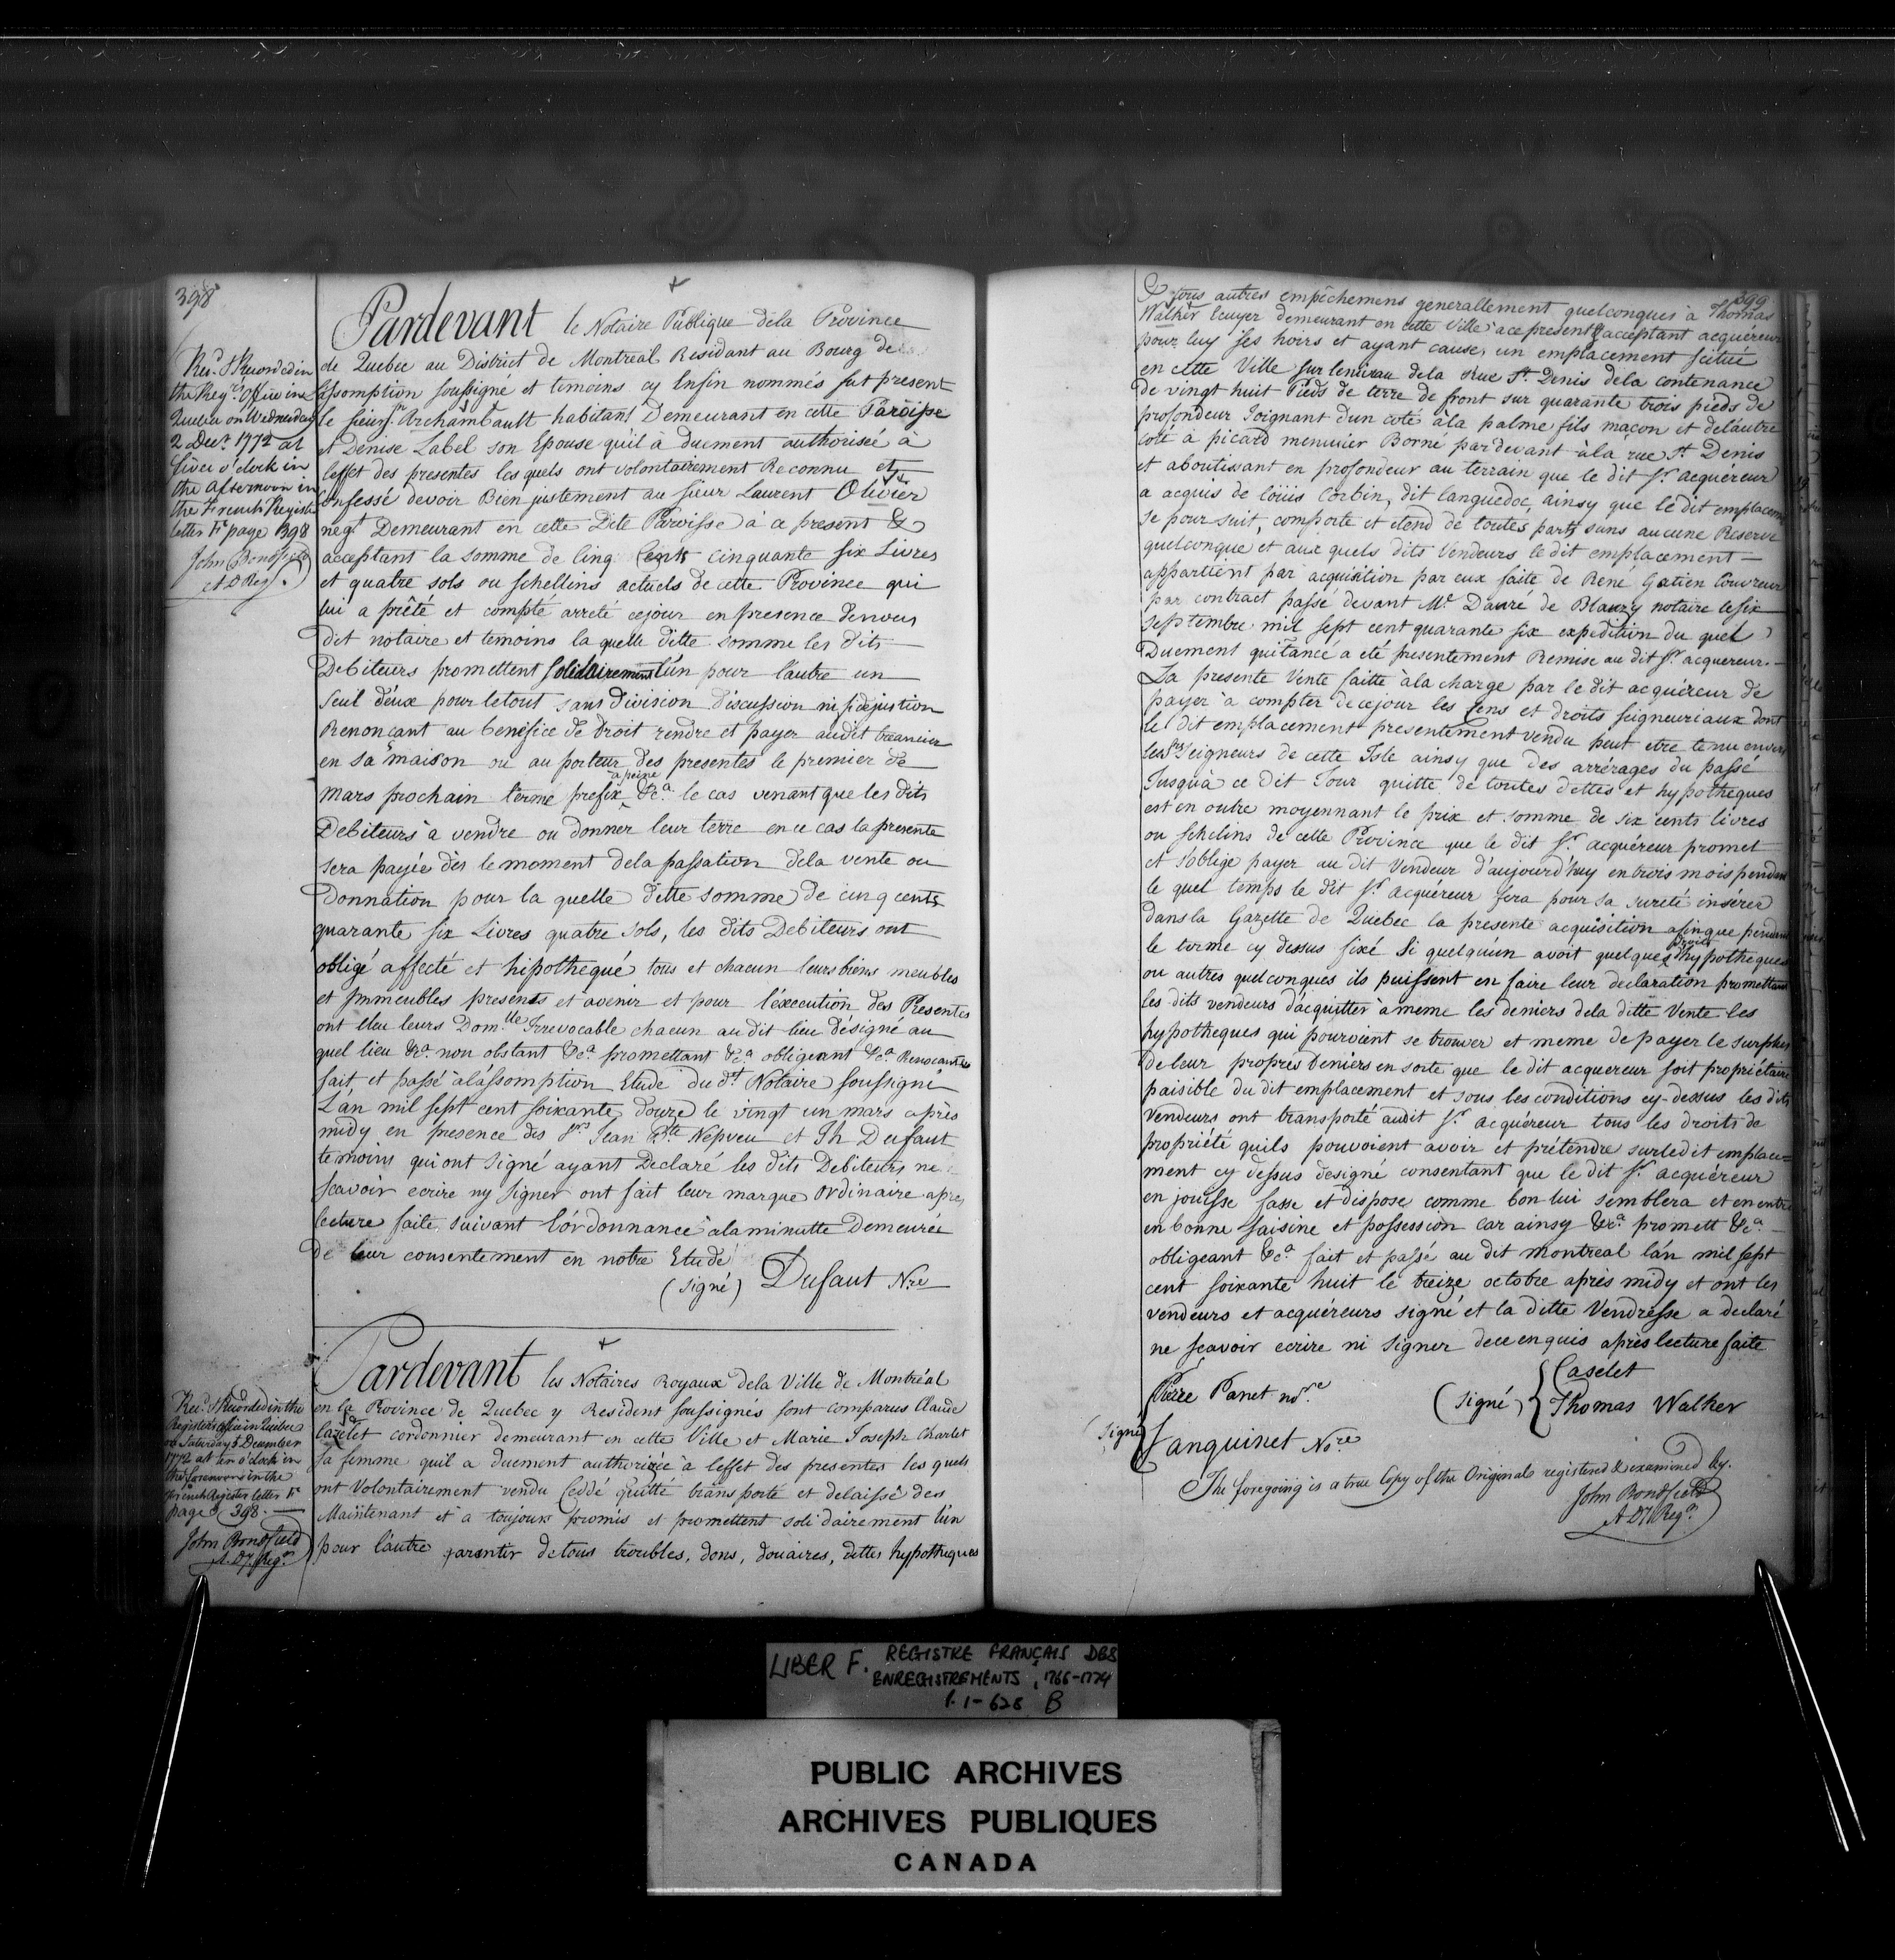 398
Pardevant le Notaire Publique dela Province
de Quebec au District de Montreal Residant au Bourg de
Lassomption soussigné et temoins cy Enfin nommés fut present
le sieur Archambault habitant Demeurant en cette Paroisse
et Denise Label son Epouse qu'il à duement authorisée à
leffet des presentes les quels ont volontairement Reconnu et
Confessé devoir Bien justement au sieur Laurent Olivier
negt. Demeurant en cette Dite Paroisse à ce present &
acceptant la somme de Cinq Cents cinquante six Livres
et quatre sols ou schellins actuels de cette Province qui
lui a prêté et compté arreté cejour en presence denous
dit notaire et temoins la quelle ditte somme les dits
Debiteurs promettent solidairement l'ún pour láutre un
seul déux pour letout sans Division discussion ni fidejustion
Renonçant au benéfice de droit rendre et payer audit creancier
en sa maison ou au porteur des presentes le premier de
mars prochain terme prefix à peine &ca. le cas venant que les dits
Debiteurs à vendre ou donner leur terre en ce cas la presente
sera payée dès le moment dela passation dela vente ou
Donnation pour la quelle ditte somme de cinq cents
quarante six Livres quatre sols, les dits Debiteurs ont
obligé affecté et hipothequé tous et chacun leurs biens meubles
et immeubles presents et àvenir et pour l'éxecution des Presentes
ont Eleu leurs Dom.lle Irrevocable chacun au dit lieu désigné au
quel lieu &ca. non obstant &ca. promettant &ca. obligeant &ca. Renoncant &ca
fait et passé àlássomption Etude du dt. Notaire soussigné
L'án mil sept cent soixante douze le vingt un mars après
midy en presence des Srs. Jean Bte Nepveu et Jh Dufaut
temoins qui ont signé ayant Declaré les dits Debiteurs ne
scavoir ecrire ny signer ont fait leur marque ordinaire apres
lecture faite suivant l'órdonnance àlaminutte Demeurée
de leur consentement en notre Etude
(signé) Dufaut Nre
Rec.d & Recorded in
the Reg.rs Office in
Quebec on Wednesday
2 Decr. 1772 at
five o'clock in
the afternoon in
the French Registr
letter F page 398
John Bondfield
A D Reg.
Pardevant les Notaires Royaux dela Ville de Montréal
en la Province de Quebec y Resident soussignés sont comparus Claude
Cazelet cordonnier demeurant en cette Ville et Marie Joseph Charlet
sa femme quil a duement authorizée à leffet des presentes les quels
ont Volontairement vendu Ceddé quitté transporté et delaissé des
Maintenant et à toujours promis et promettent solidairement l'ún
pour láutre garentir detous troubles, dons, douaires, dettes hypotheques
Rec.d & Recorded in the
Registers Office in Quebec
on Saturday 5 December
1772 at ten o'clock in
the forenoon in the
French Register letter F
page 398.
John Bondfield
A. Dy. Regr.
399
& tous autres empêchemens generallement quelconques à Thomas
Walker Ecuyer demeurant en cette Ville àce present & acceptant acquéreur
pour luy ses hoirs et ayant cause, un emplacement scitué
en cette Ville sur leniveau dela Rue St. Denis dela contenance
de vingt huit Pieds de terre de front sur quarante trois pieds de
profondeur Joignant dun coté àla palme fils maçon et deláutre
coté à picard menuisier Borné pardevant àla rue St Denis
et aboutissant en profondeur au terrain que le dit Sr. acquéreur
a acquis de löüis Corbin, dit languedoc, ainsy que le dit emplacemt
se pour suit, comporte et etend de toutes parts sans aucune Reserve
quelconque et aux quels dits Vendeurs le dit emplacement
appartient par acquisition par eux faite de René Gatien Couvreur
par contract passé devant Me. Dauré de Blanzy notaire lesix
Septembre mil sept cent quarante six expedition du quel
Duement quitancé a eté presentement Remise au dit Sr. acquereur.
La presente Vente faitte àla charge par le dit acquéreur de
payer à compter decejour les Cens et droits seigneuriaux dont
le dit emplacement presentement vendu peut etre tenu envers
les Srs. Seigneurs de cette Isle ainsy que des arrérages du passé
Jusqu'à ce dit Jour quitte de toutes dettes et hypotheques
est en outre moyennant le prix et somme de six cents livres
ou schelins de cette Province que le dit Sr. acquéreur promet
et soblige payer au dit Vendeur d'aujourd'huy entrois mois pendant
le quel temps le dit Sr. acquéreur fera pour sa sureté insérer
dans la Gazette de Quebec la presente acquisition afinque pendant
le terme cy dessus fixé Si quelquún avoit quelques Droits hypotheques
ou autres quelconques ils puissent en faire leur declaration promettant
les dits vendeurs d'acquitter à meme les deniers dela ditte Vente les
hypotheques qui pourroient se trouver et meme de payer le surplus
de leur propres Deniers en sorte que le dit acquereur soit propriétaire
paisible du dit emplacement et sous les conditions cy-dessus les dits
Vendeurs ont transporté audit Sr. acquéreur tous les droits de
propriété quils pouvoient avoir et prétendre surledit emplace=
ment cy dessus designé consentant que le dit Sr. acquéreur
en jouisse fasse et dispose comme bon lui semblera et en entre
en bonne saisine et possession car ainsy &ca. promett &ca.
obligeant &ca. fait et passé au dit montreal lán mil sept
cent soixante huit le treize octobre après midy et ont les
vendeurs et acquéreurs signé et la ditte Vendresse a declaré
ne scavoir ecrire ni signer dece enquis après lecture faite
(signé) Caselet
Thomas Walker
(signé) Pierre Panet nore.
Sanguinet Nore
The foregoing is a true Copy of the Originals registered & examined by.
John Bondfield
A Dy Regr.
LIBER F. REGISTRE FRANÇAIS DES
ENREGISTREMENTS, 1766-1774
P. 1-628 B
PUBLIC ARCHIVES
ARCHIVES PUBLIQUES
CANADA